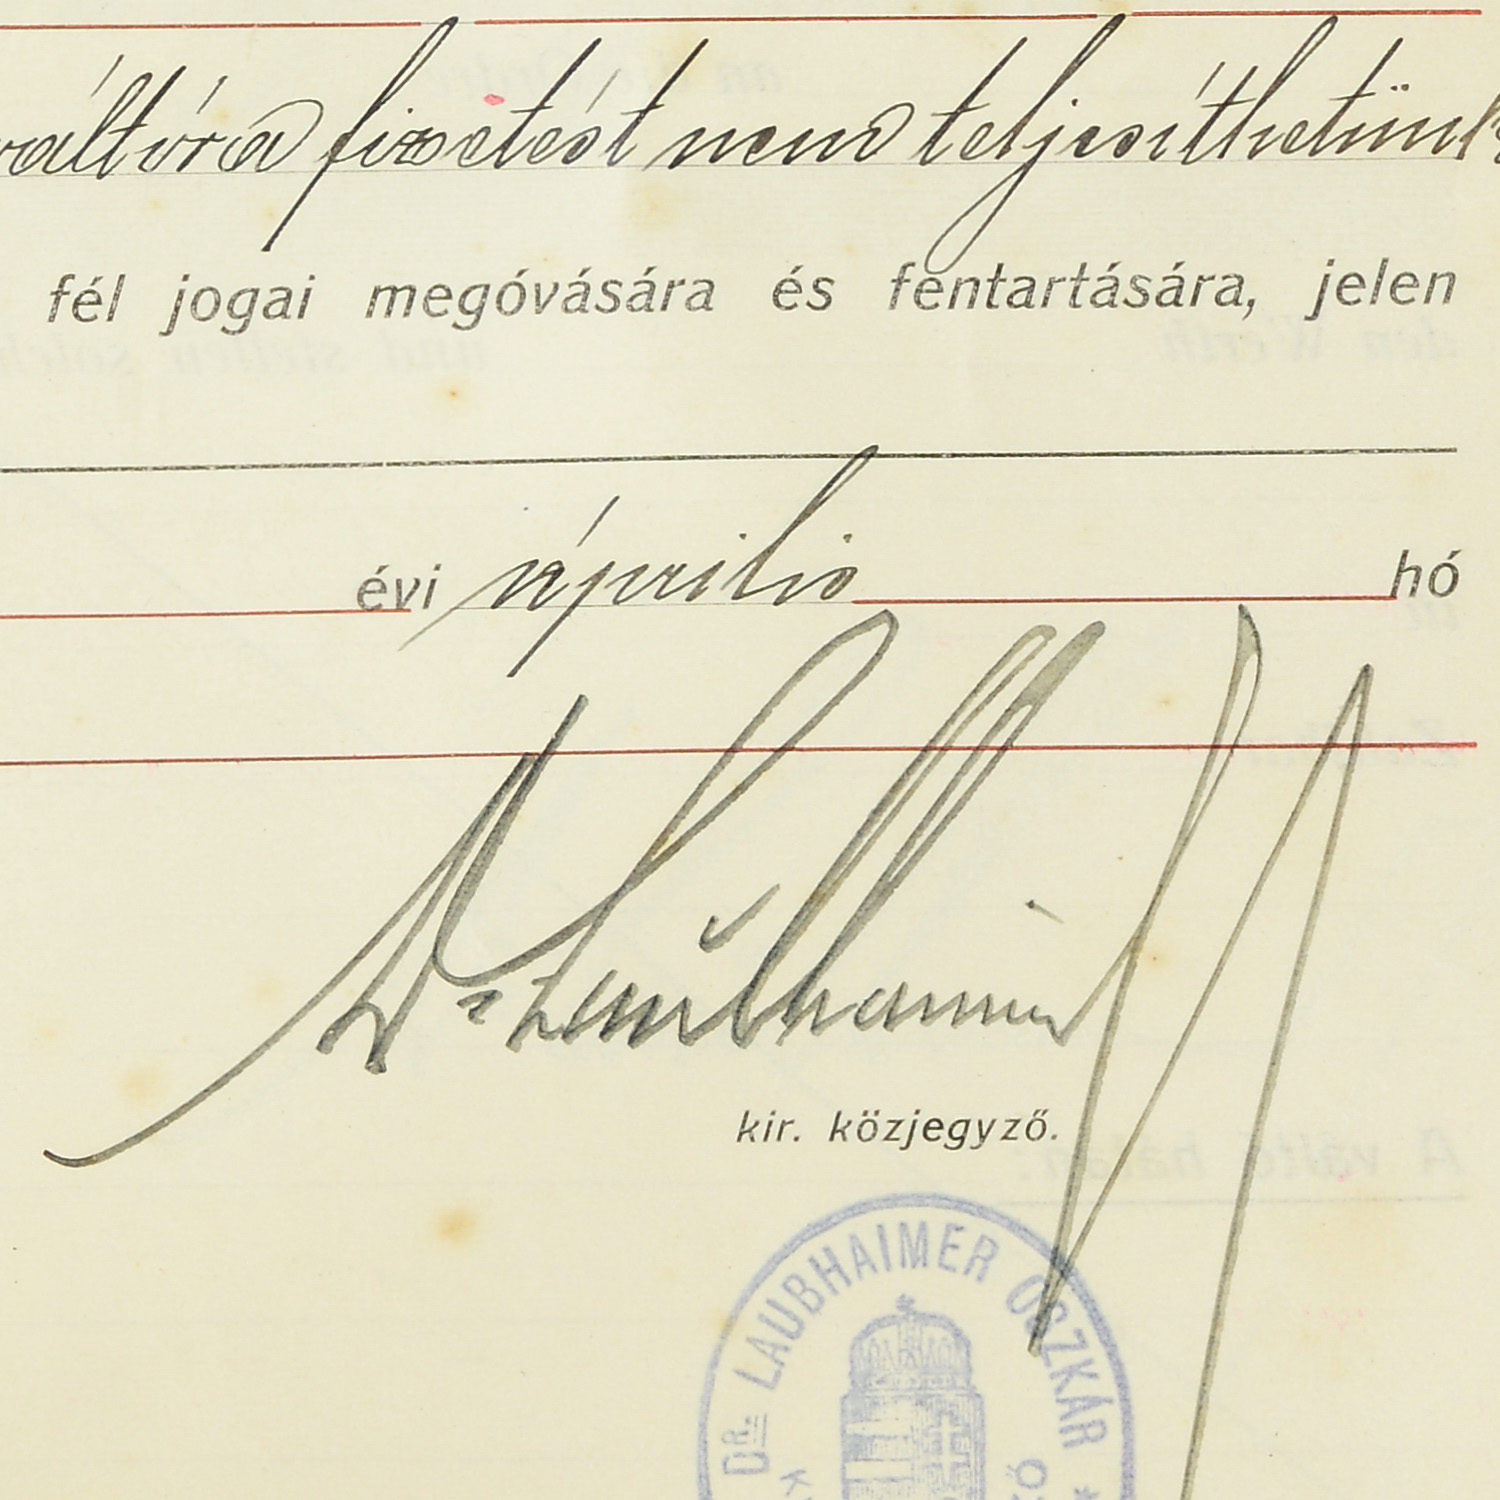 váltóra fizetést nem teljesíthetünk
fél jogai megóvására és fentartására, jelen
évi április hó
Dr Laubhaimer
kir. közjegyző.
DR. LAUBHAIMER OSZKÁR *